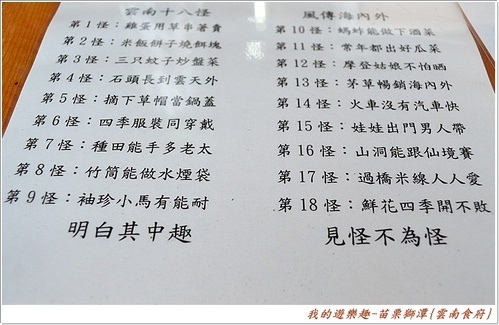 雲南十八怪
第1怪：雞蛋用草串著賣
第2怪：米飯餅子燒餌塊
第3怪：三只蚊子炒盤菜
第4怪：石頭長到雲天外
第5怪：摘下草帽當鍋蓋
第6怪：四季服裝同穿戴
第7怪：種田能手多老太
第8怪：竹筒能做水煙袋
第9怪：袖珍小馬有能耐
明白其中趣
風傳海內外
第10怪：螞蚱能做下酒菜
第11怪：常年都出好瓜菜
第12怪：摩登姑娘不怕晒
第13怪：茅草暢銷海內外
第14怪：火車沒有汽車快
第15怪：娃娃出門男人帶
第16怪：山洞能跟仙境賽
第17怪：過橋米線人人愛
第18怪：鮮花四季開不敗
見怪不為怪
我的遊樂趣-苗栗獅潭{雲南食府}